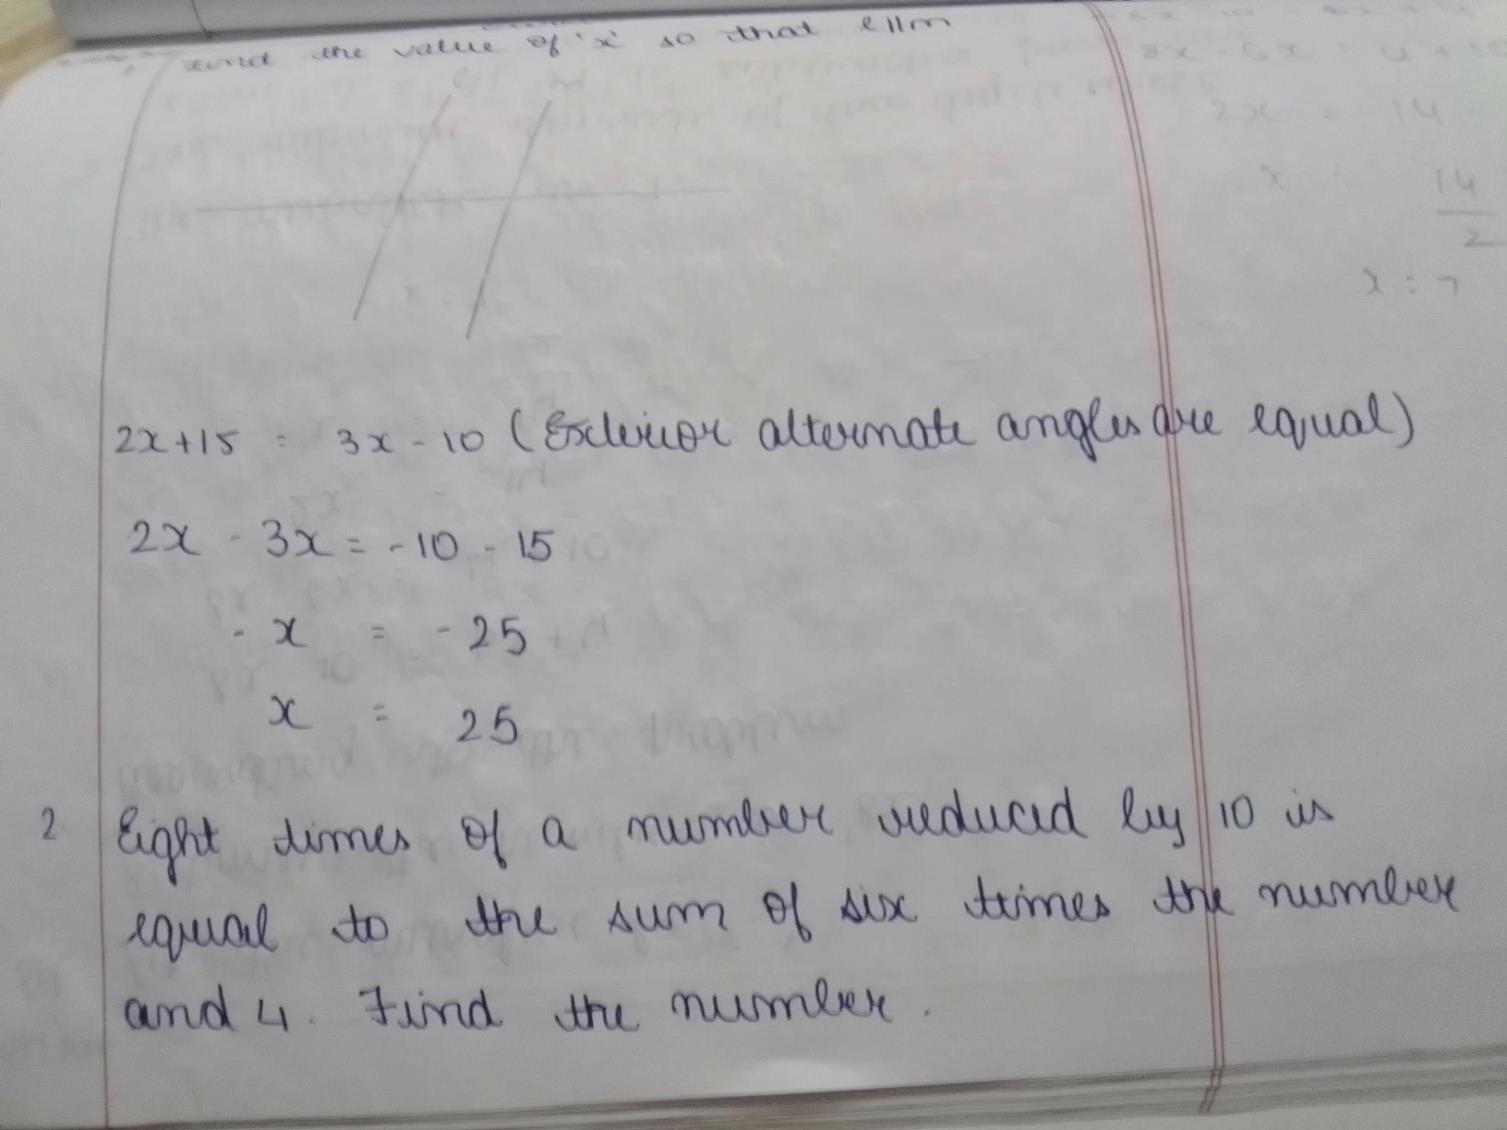 Find the value of 'x' so that l||m
8x - 6x = 4 + 10
2x = 14
x = 14
2
x = 7
2x+15 = 3x - 10 (Exterior alternate angles are equal)
2x - 3x = -10 - 15
- x = - 25
x = 25
2 Eight times of a number reduced by 10 is
equal to the sum of six times the number
and 4. Find the number.